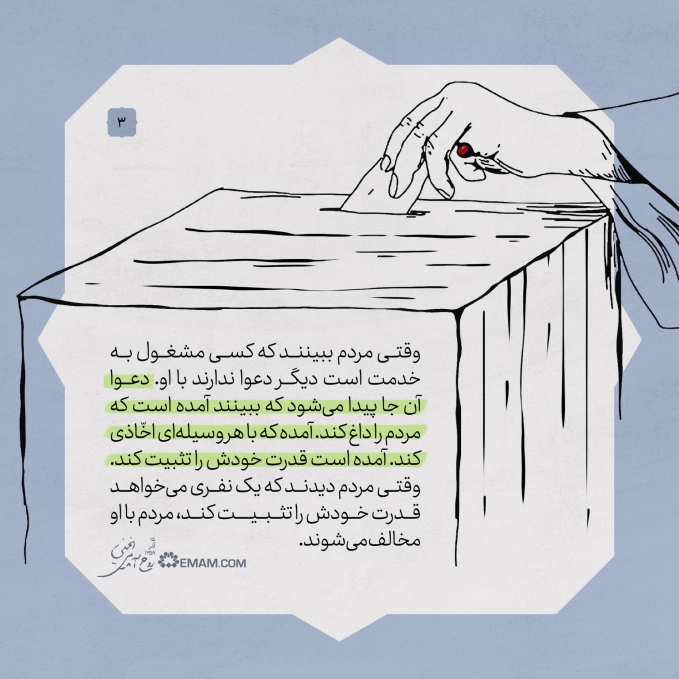 ۳
وقتی مردم ببینند که کسی مشغول به
خدمت است دیگر دعوا ندارند با او. دعوا
آن جا پیدا می‌شود که ببینند آمده است که
مردم را داغ کند. آمده که با هر وسیله‌ای اخّاذی
کند. آمده است قدرت خودش را تثبیت کند.
وقتی مردم دیدند که یک نفری می‌خواهد
قدرت خودش را تثبیت کند، مردم با او
مخالف می‌شوند.
EMAM.COM